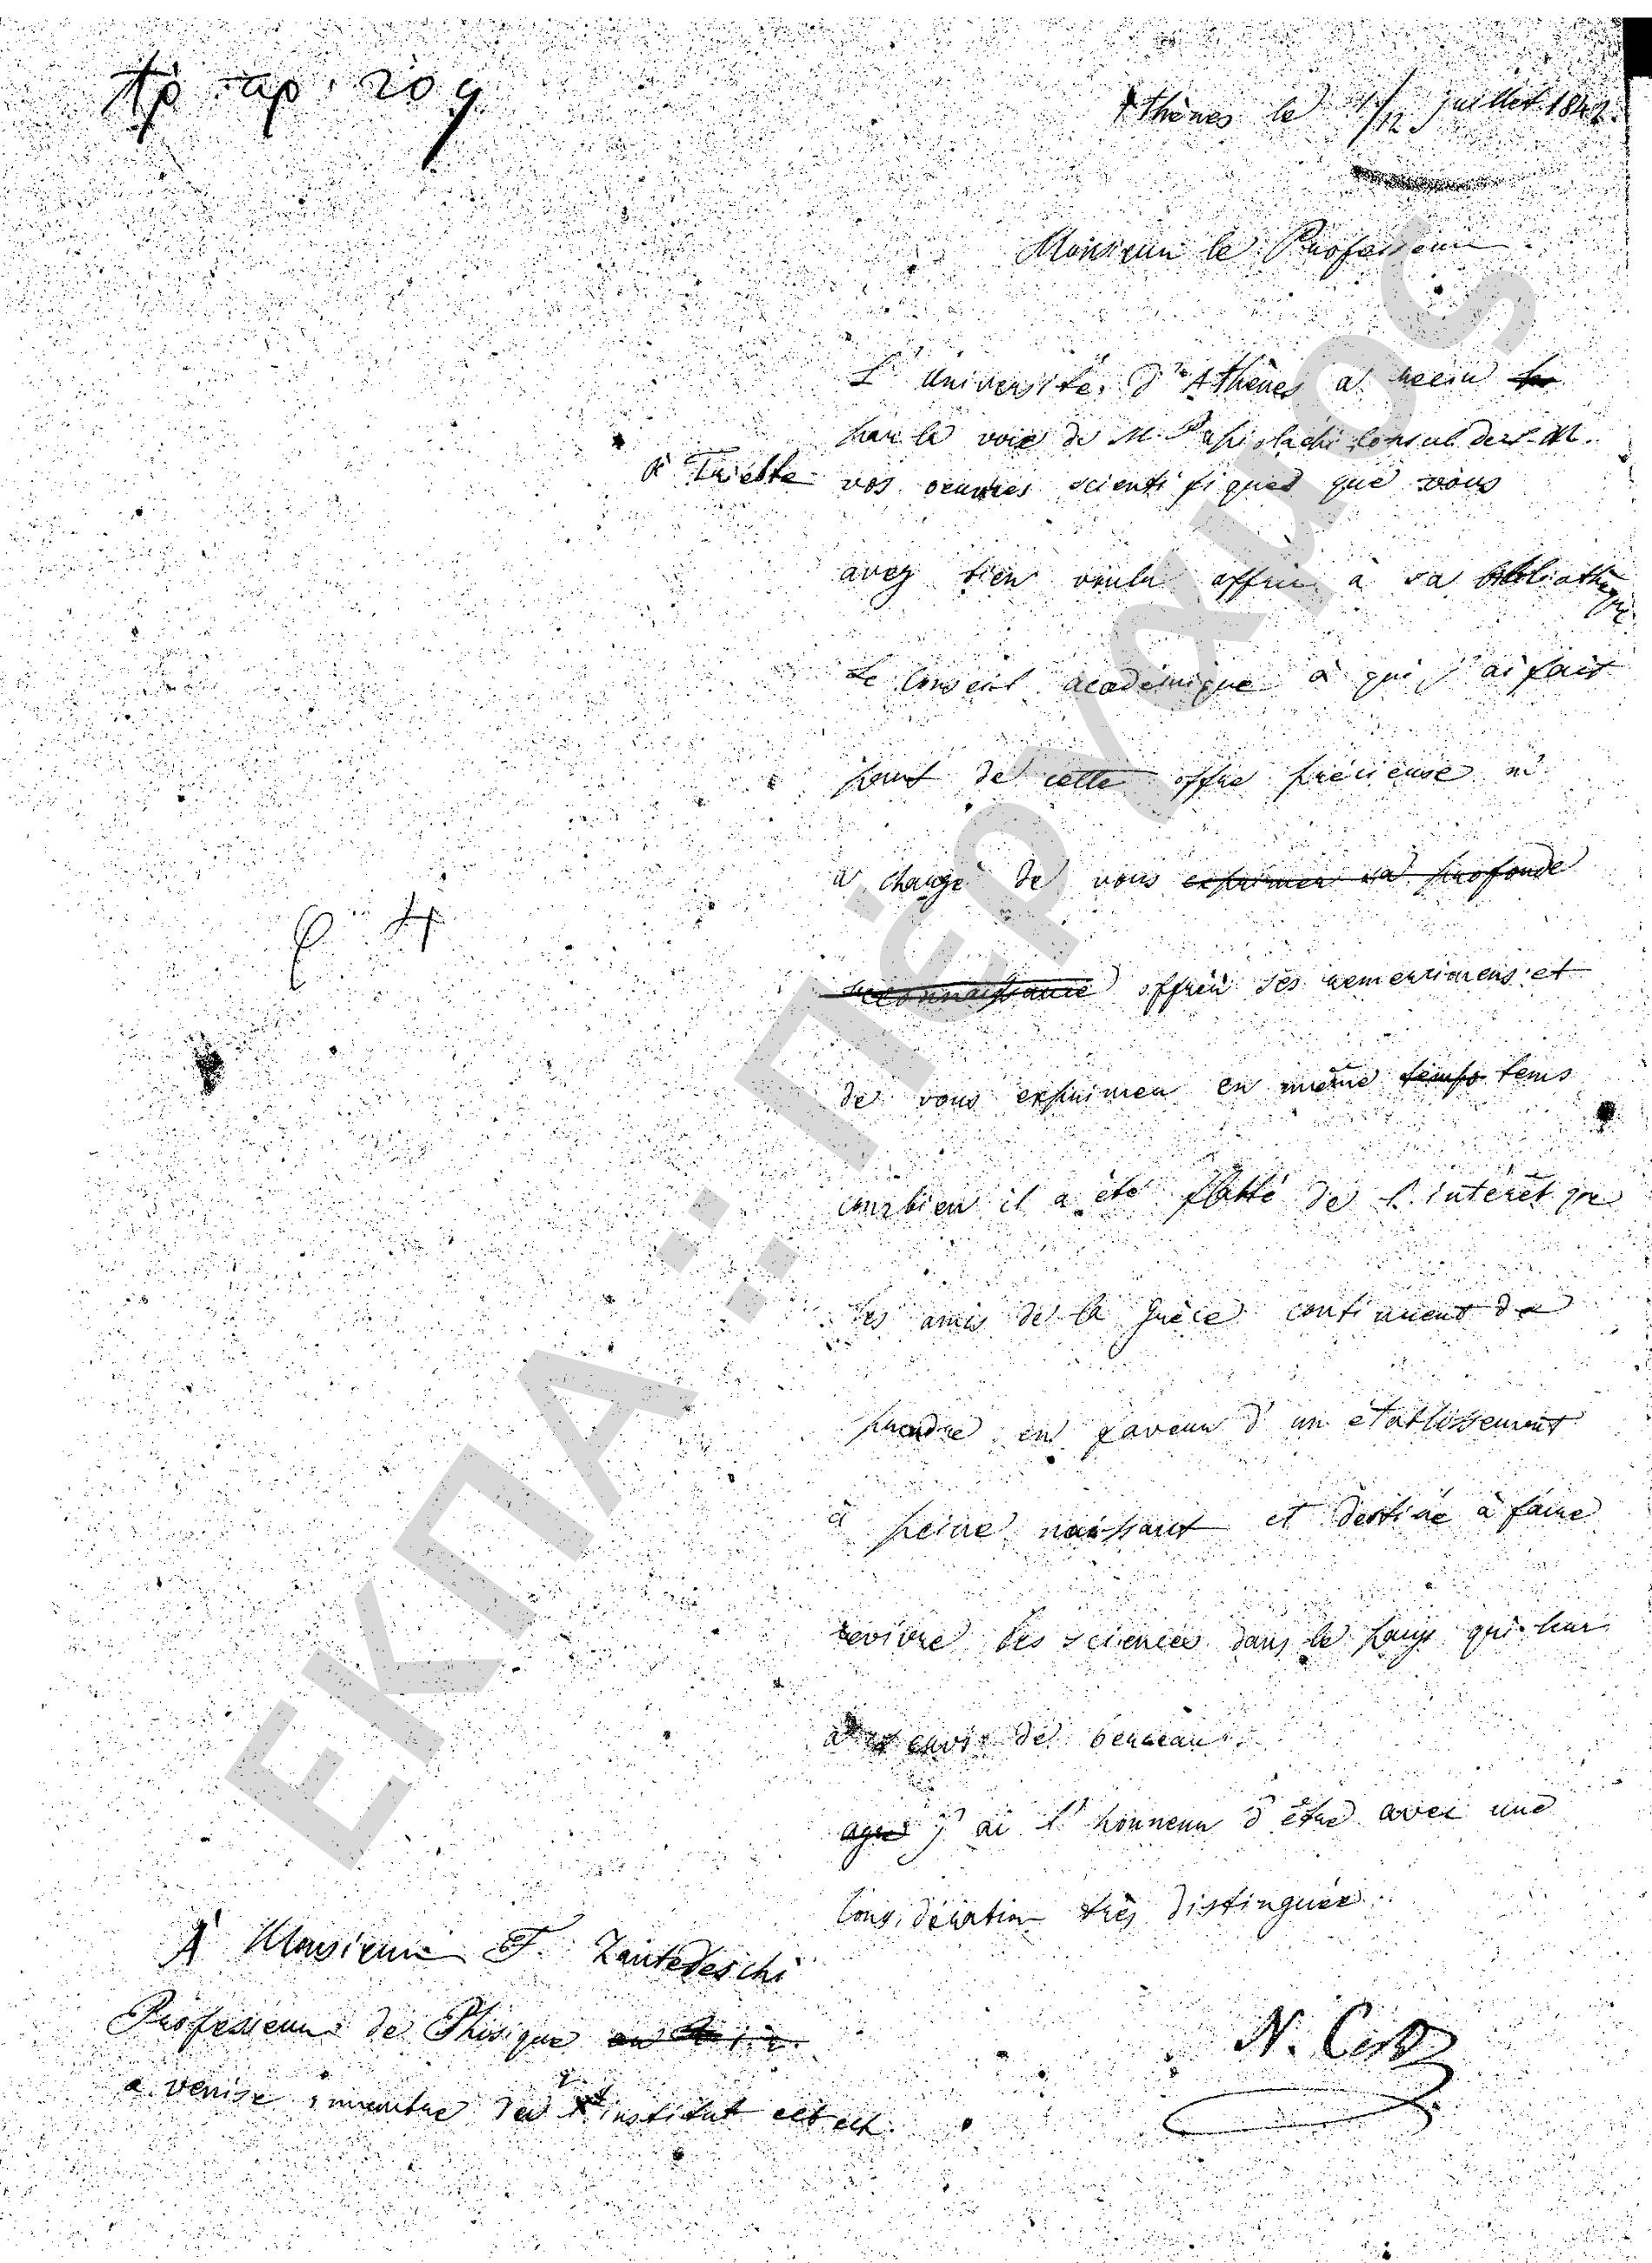 Ἀρ. πρ. 209
Athènes le 1/12 juillet 1842.
Monsieur le Professeur
L'Université d'Athènes a recu
par la voie de M. consul de S. M.
à Trieste vos oeuvres scientifiques que vous
avez bien voulu offrir à sa bibliothèque
Le Conseil academique à qui j'ai fait
part de cette offre précieuse m'
a chargé de vous exprimer sa profonde
reconnaissance offrir ses remercimens et
de vous exprimer en même temps tems
combien il a été flatté de l'interêt que
les amis de la Grèce continuent de
prendre en faveur d'un établissement
à peine naissant et destiné à faire
revivre les sciences dans le pays qui leur
a servi de berceau.
j'ai l'honneur d'être avec une
Consideration très distinguée
À Monsieur F. Zantedeschi
Professeur de Phisique
a Venise, membre de l'institut
N. Cost
ΕΚΠΑ:: Πέργαμος